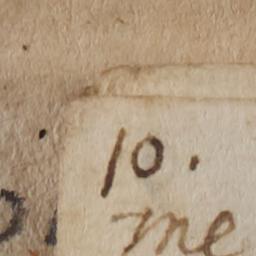 10.
me